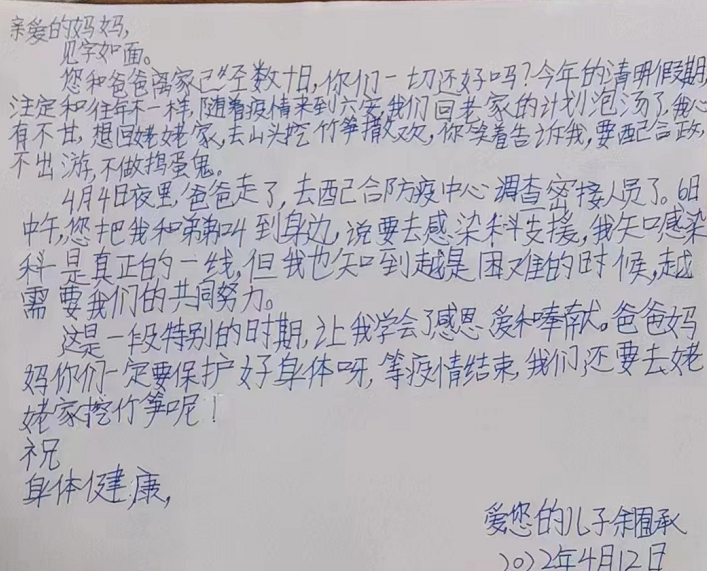 亲爱的妈妈,
见字如面。
您和爸爸离家已经数十日,你们一切还好吗?今年的清明假期,
注定和往年不一样,随着疫情来到六安,我们回老家的计划泡汤了,我心
有不甘,想回姥姥家,去山头挖竹笋撒欢,你笑着告诉我,要配合政,
不出游,不做捣蛋鬼。
4月4日夜里,爸爸走了,去配合防疫中心调查密接人员了。6日
中午,您把我和弟弟叫到身边,说要去感染科支援,我知口感染
科是真正的一线,但我也知到越是困难的时候,越
需要我们的共同努力。
这是一段特别的时期,让我学会了感恩、爱和奉献。爸爸妈
妈你们一定要保护好身体呀,等疫情结束,我们还要去姥
姥家挖竹笋呢!
祝
身体健康,
爱您的儿子余承
2022年4月12日